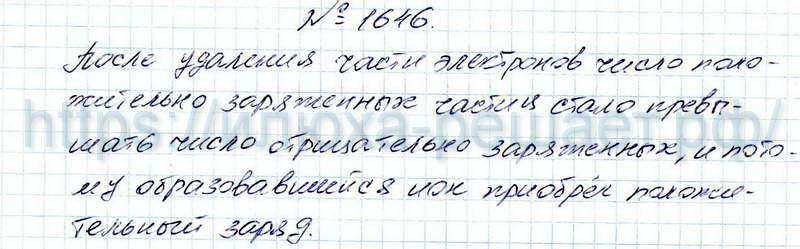 № 1646.
После удаления части электронов число поло-
жительно заряженных частиц стало превы-
шать число отрицательно заряженных, и пото-
му образовавшийся ион приобрёл положи-
тельный заряд.